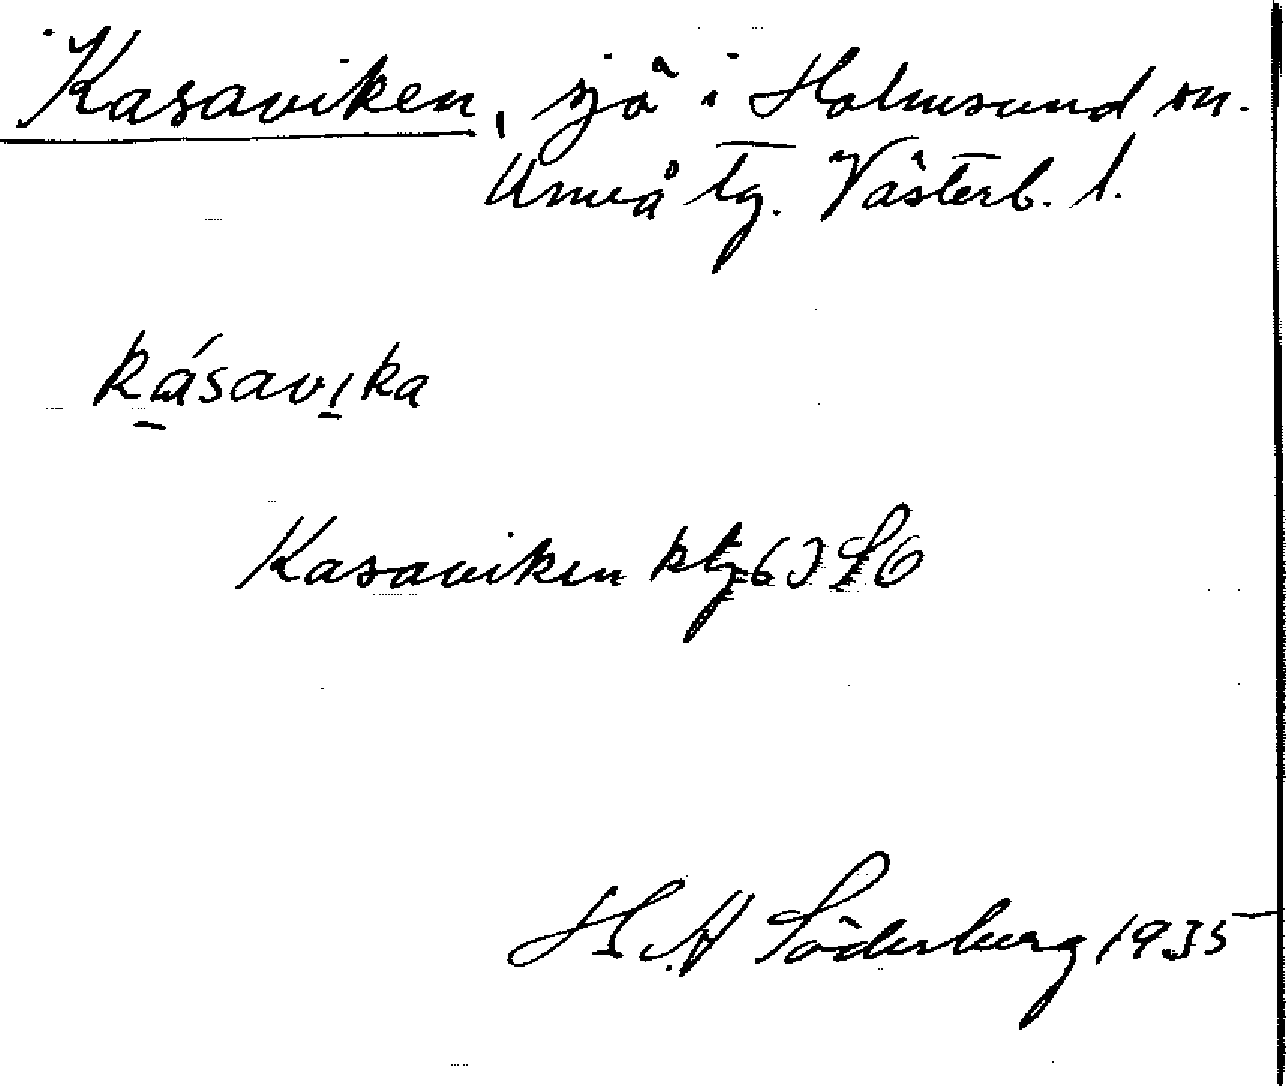 Kasaviken, sjö i Holmsund sn.
Umeå tg. Västerb. l.
kásavika
Kasaviken ktg 63 SO
H. A Söderberg 1935